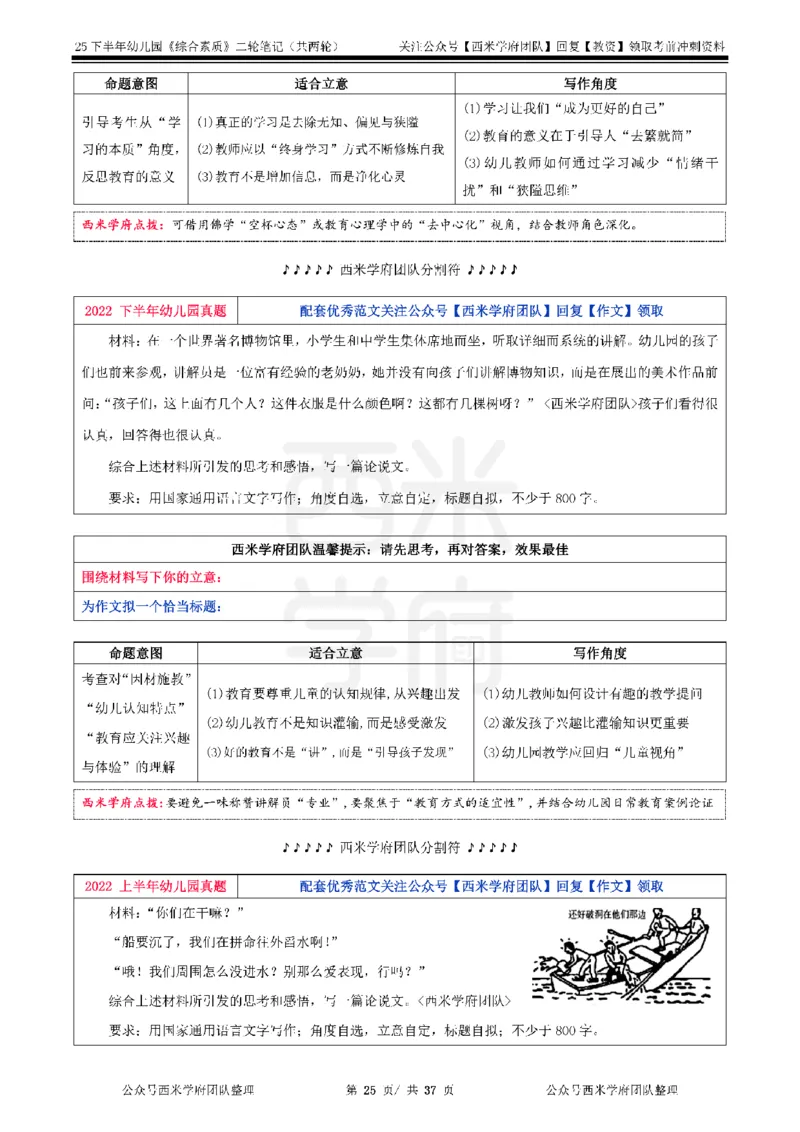 25下半年幼儿园《综合素质》二轮笔记（共两轮）
关注公众号【西米学府团队】回复【教资】领取考前冲刺资料
命题意图 适合立意 写作角度
引导考生从“学
习的本质”角度，
反思教育的意义
(1)真正的学习是去除无知、偏见与狭隘
(2)教师应以“终身学习”方式不断修炼自我
(3)教育不是增加信息，而是净化心灵
(1)学习让我们“成为更好的自己”
(2)教育的意义在于引导人“去繁就简”
(3)幼儿教师如何通过学习减少“情绪干
扰”和“狭隘思维”
西米学府点拨：可借用佛学“空杯心态”或教育心理学中的“去中心化”视角，结合教师角色深化。
♪♪♪♪♪ 西米学府团队分割符 ♪♪♪♪♪
2022 下半年幼儿园真题 配套优秀范文关注公众号【西米学府团队】回复【作文】领取
材料：在一个世界著名博物馆里，小学生和中学生集体席地而坐，听取详细而系统的讲解。幼儿园的孩子
们也前来参观，讲解员是一位富有经验的老奶奶，她并没有向孩子们讲解博物知识，而是在展出的美术作品前
问：“孩子们，这上面有几个人？这件衣服是什么颜色啊？这都有几棵树呀？”<西米学府团队>孩子们看得很
认真，回答得也很认真。
综合上述材料所引发的思考和感悟，写一篇论说文。
要求：用国家通用语言文字写作；角度自选，立意自定，标题自拟，不少于800字。
西米学府团队温馨提示：请先思考，再对答案，效果最佳
围绕材料写下你的立意：
为作文拟一个恰当标题：
命题意图 适合立意 写作角度
考查对“因材施教”
“幼儿认知特点”
“教育应关注兴趣
与体验”的理解
(1)教育要尊重儿童的认知规律,从兴趣出发
(2)幼儿教育不是知识灌输,而是感受激发
(3)好的教育不是“讲”,而是“引导孩子发现”
(1)幼儿教师如何设计有趣的教学提问
(2)激发孩子兴趣比灌输知识更重要
(3)幼儿园教学应回归“儿童视角”
西米学府点拨:要避免一味称赞讲解员“专业”,要聚焦于“教育方式的适宜性”,并结合幼儿园日常教育案例论证
♪♪♪♪♪ 西米学府团队分割符 ♪♪♪♪♪
2022 上半年幼儿园真题 配套优秀范文关注公众号【西米学府团队】回复【作文】领取
材料：“你们在干嘛？”
“船要沉了，我们在拼命往外舀水啊！”
“哦！我们周围怎么没进水？别那么爱表现，行吗？”
综合上述材料所引发的思考和感悟，写一篇论说文。<西米学府团队>
要求：用国家通用语言文字写作；角度自选，立意自定，标题自拟；不少于800字。
还好破洞在他们那边
西米
学府
公众号西米学府团队整理 第 25 页/ 共 37 页 公众号西米学府团队整理